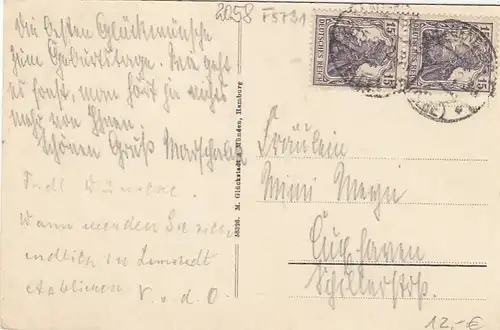 2058 F5731
Die besten Glückwünsche
zum Geburtstage. Wie geht
es sonst, man hört ja nichts
mehr von Ihnen.
Schönen Gruß
Wann werden Sie sich
endlich in Lamstedt
v. d. O.
58326. M. Glückstadt & Münden, Hamburg
DEUTSCHES REICH 15 15
DEUTSCHES REICH 15 15
Fräulein
Mimi
Cuxhaven
Schillerstr.
12,-€